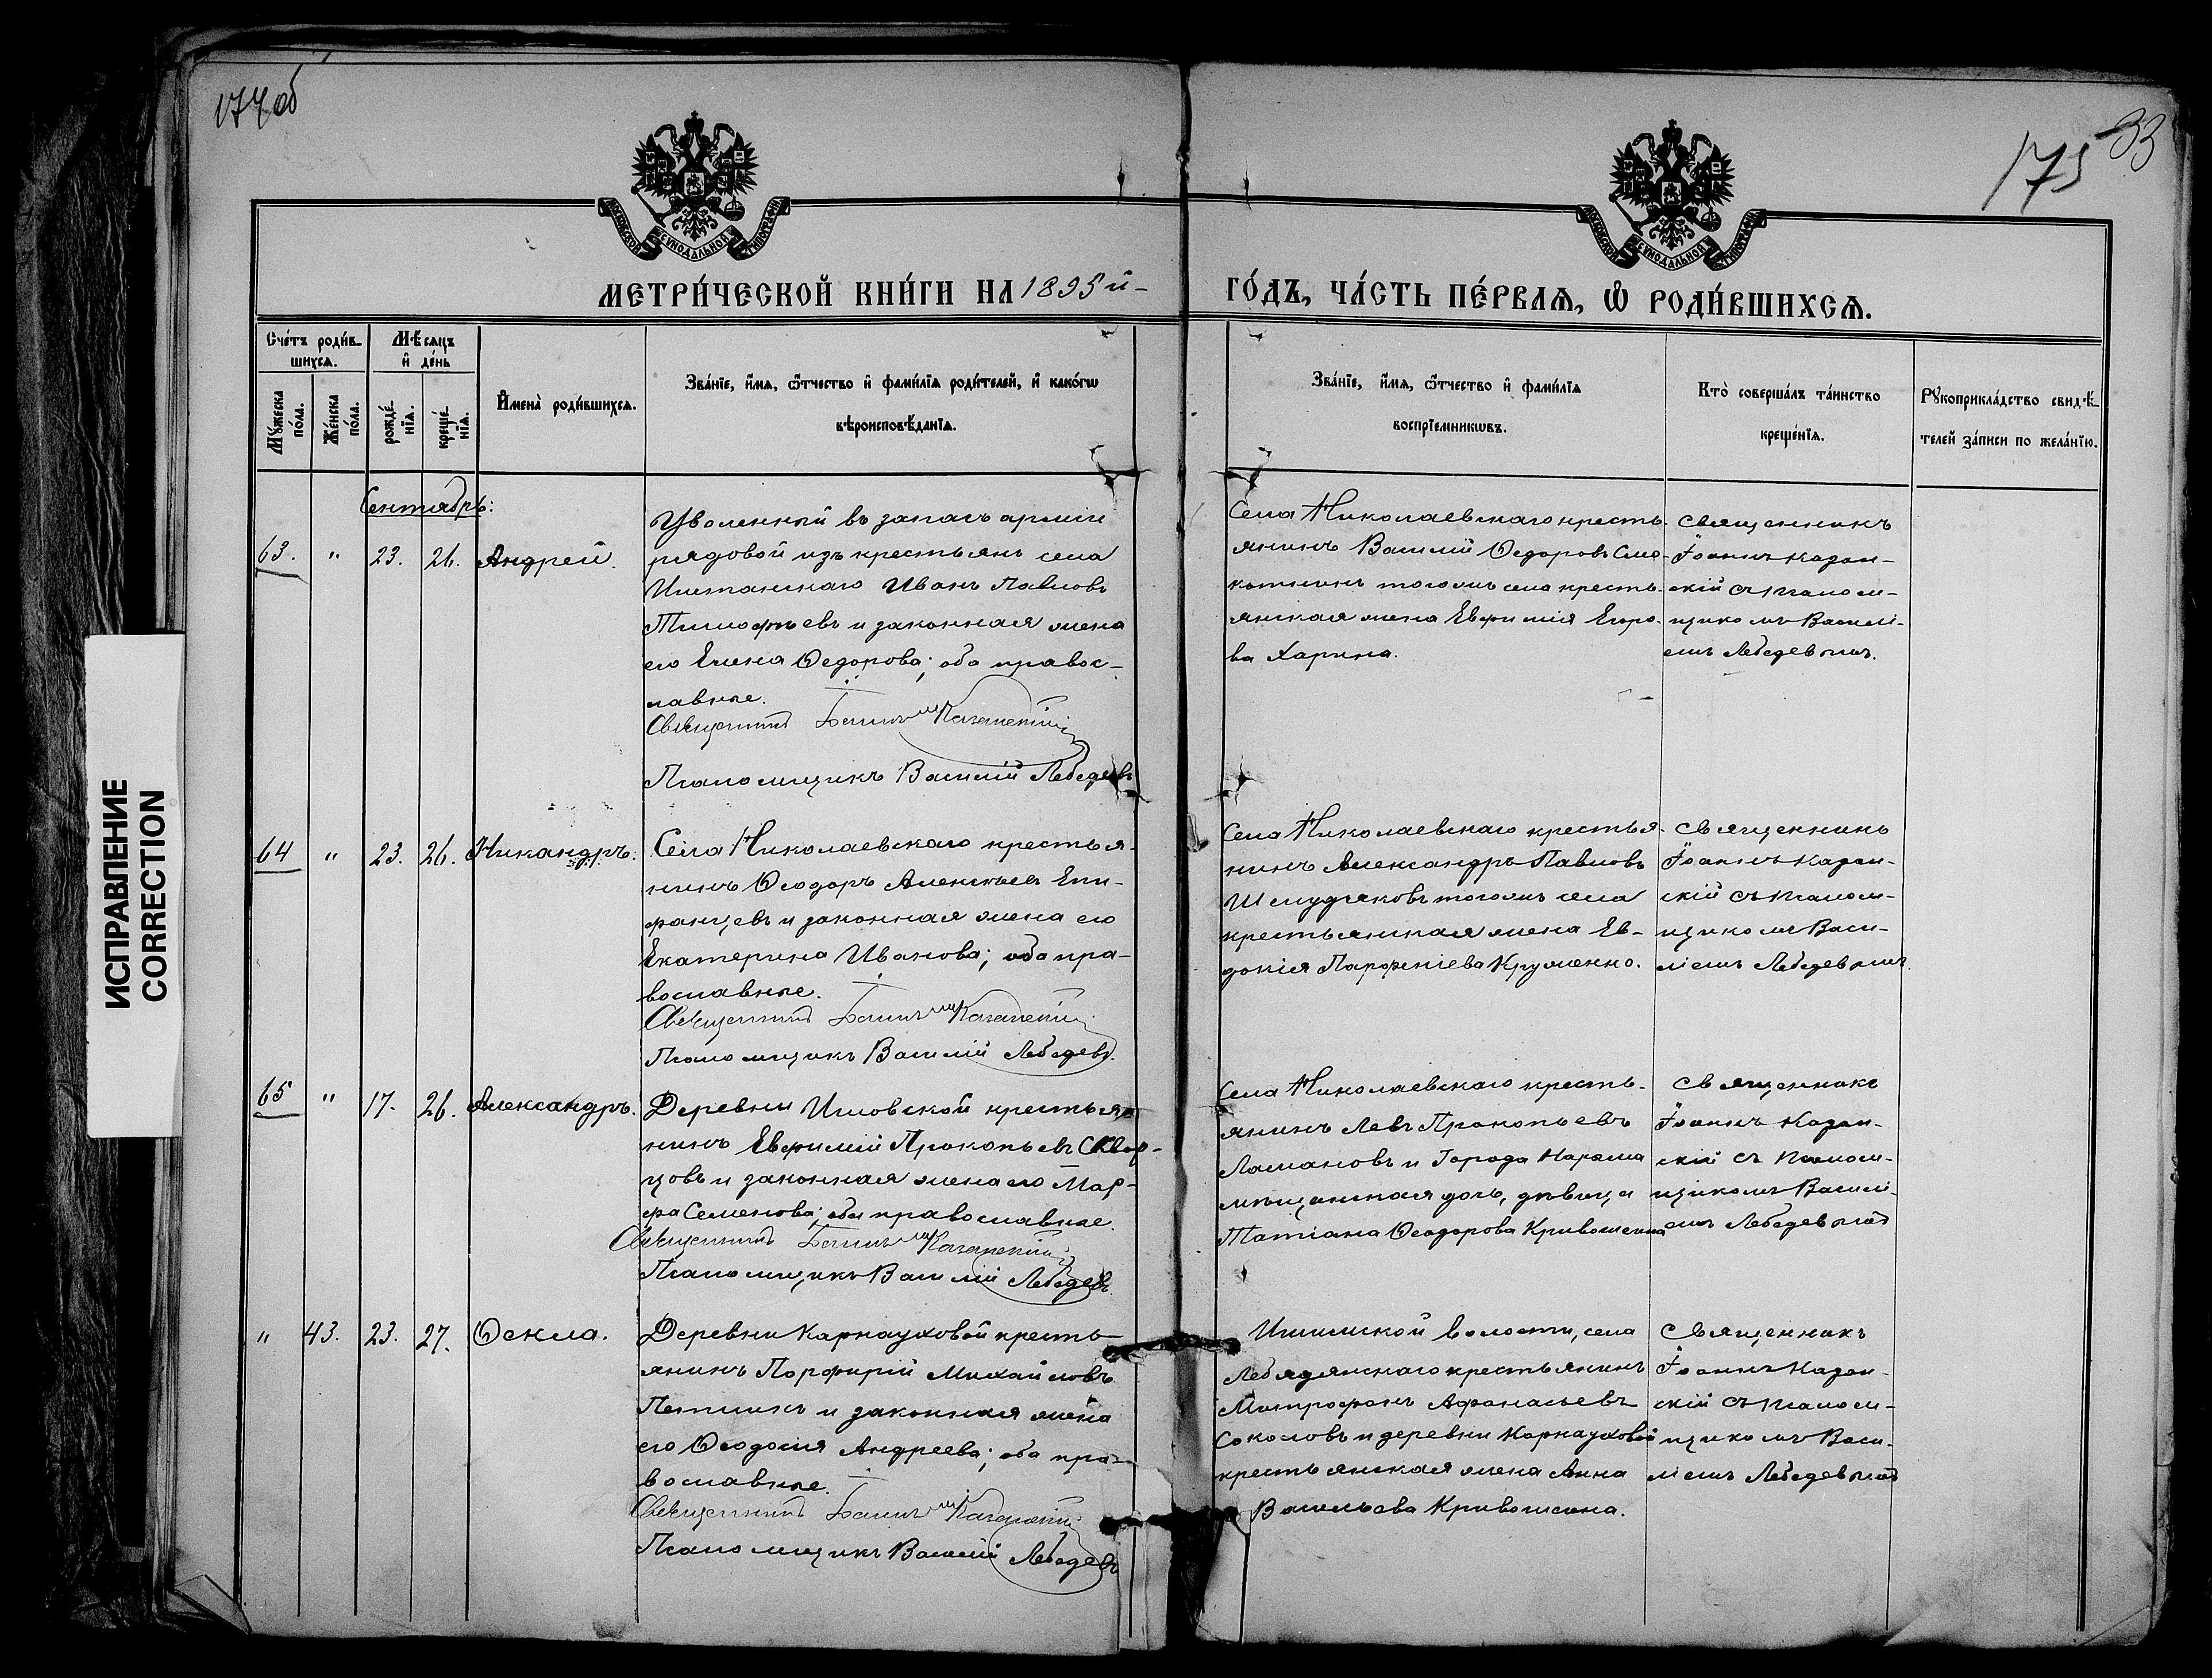 174 об
33
175
МОСКОВСКОЙ СУНОДАЛЬНОЙ ТИПОГРАФІИ
МОСКОВСКОЙ СУНОДАЛЬНОЙ ТИПОГРАФІИ
МЕТРИ́ЧЕСКОЙ КНИ́ГИ НА 1895 й
ГО́ДЪ, ЧА́СТЬ ПЕ́РВАѦ, Ѡ РОДИ́ВШИХСѦ.
Сче́тъ роди́в-
шихсѧ.
Мѣ́сѧцъ
и҆ де́нь
Мꙋ́жеска
по́ла.
Же́нска
по́ла.
рожде́-
нїѧ.
креще́-
нїѧ.
И҆мена̀ роди́вшихсѧ.
Зва́нїе, и҆́мѧ, ѻ҆́тчество и҆ фами́лїѧ роди́телей, и҆ како́гѡ
вѣроисповѣ́данїѧ.
Зва́нїе, и҆́мѧ, ѻ҆́тчество и҆ фами́лїѧ
воспрїе́мникѡвъ.
Кто̀ соверша́лъ та́инство
креще́нїѧ.
Рꙋкоприкла́дство свидѣ́-
телей за́писи по жела́нїю.
Сентябрь:
63. " 23. 26. Андрей.
Уволенный въ запасъ арміи
рядовой изъ крестьянъ села
Иштанскаго Иванъ Павловъ
Тимофѣевъ и законная жена
его Елена Ѳедорова; оба правос-
лавные.
Священникъ Іоаннъ Казанскій
Псаломщикъ Василій Лебедевъ
Села Николаевскаго кресть-
янинъ Василій Ѳедоровъ Смо-
котнинъ тогожъ села кресть-
янская жена Евфимія Егоро-
ва Харина.
Священникъ
Іоаннъ Казан-
скій съ псалом-
щикомъ Васи­лі-
емъ Лебедевымъ.
64 " 23. 26. Никандръ.
Села Николаевскаго крестья-
нинъ Ѳеодоръ Алексѣевъ Епи-
фанцевъ и законная жена его
Екатерина Иванова; оба пра-
вославные.
Священникъ Іоаннъ Казанскій
Псаломщикъ Василій Лебедевъ.
Села Николаевскаго крестья-
нинъ Александръ Павловъ
Шелудяковъ тогожъ села
крестьянская жена Ев-
докія Парфеніева Круменко.
Священникъ
Іоаннъ Казан-
скій съ псалом-
щикомъ Васи-
ліемъ Лебедевымъ.
65 " 17. 26. Александръ.
Деревни Игловской крестья-
нинъ Евфимій Прокопьевъ Сквор-
цовъ и законная жена его Мар-
фа Семенова; оба православные.
Священникъ Іоаннъ Казанскій
Псаломщикъ Василій Лебедевъ.
Села Николаевскаго кресть-
янинъ Левъ Прокопьевъ
Ломановъ и Города Нарыма
мѣщанская дочь, дѣвица
Татіана Ѳеодорова Кривошеина
Священникъ
Іоаннъ Казан-
скій съ псалом-
щикомъ Васи­лі-
емъ Лебедевымъ
" 43. 23. 27. Ѳекла.
Деревни Карнауховой кресть-
янинъ Порфирій Михайловъ
Петлинъ и законная жена
его Ѳеодосія Андреева; оба пра-
вославные.
Священникъ Іоаннъ Казанскій
Псаломщикъ Василій Лебедевъ
Ишимской волости, села
Лебядянскаго крестьянинъ
Митрофанъ Афанасьевъ
Соколовъ и деревни Карнауховой
крестьянская жена Анна
Васильева Кривошеина.
Священникъ
Іоаннъ Казан-
скій съ псалом-
щикомъ Васи-
ліемъ Лебедевымъ
ИСПРАВЛЕНИЕ
CORRECTION